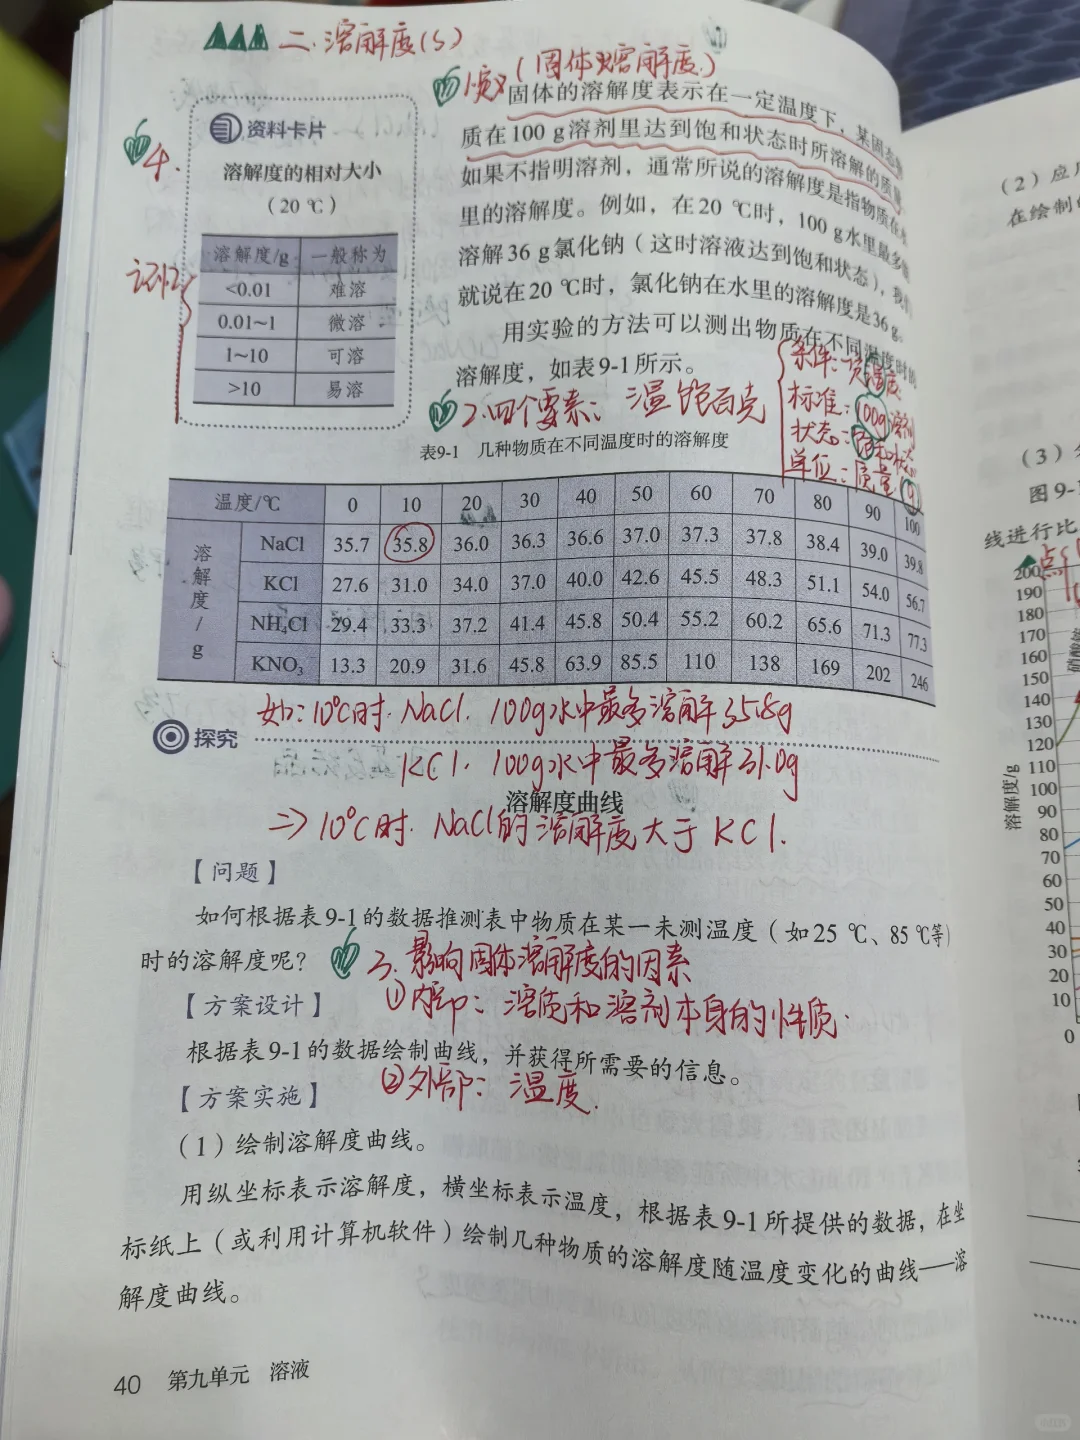 二.溶解度(S)
1.定义(固体溶解度.)
固体的溶解度表示在一定温度下,某固态
质在100 g溶剂里达到饱和状态时所溶解的质量
如果不指明溶剂,通常所说的溶解度是指物质在水
里的溶解度。例如,在20 ℃时,100 g水里最多
溶解36 g氯化钠(这时溶液达到饱和状态),我们
就说在20 ℃时,氯化钠在水里的溶解度是36 g。
用实验的方法可以测出物质在不同温度时的
溶解度,如表9-1所示。
4.
资料卡片
溶解度的相对大小
(20 ℃)
溶解度/g 一般称为
<0.01 难溶
0.01~1 微溶
1~10 可溶
>10 易溶
识记
2.四个要素: 温饱百克
条件:一定温度
标准:100g溶剂
状态:饱和状态
单位:质量(g)
表9-1 几种物质在不同温度时的溶解度
温度/℃ 0 10 20 30 40 50 60 70 80 90 100
溶解度/g
NaCl 35.7 35.8 36.0 36.3 36.6 37.0 37.3 37.8 38.4 39.0 39.8
KCl 27.6 31.0 34.0 37.0 40.0 42.6 45.5 48.3 51.1 54.0 56.7
NH₄Cl 29.4 33.3 37.2 41.4 45.8 50.4 55.2 60.2 65.6 71.3 77.3
KNO₃ 13.3 20.9 31.6 45.8 63.9 85.5 110 138 169 202 246
如:10℃时.NaCl.100g水中最多溶解35.8g
探究
KCl.100g水中最多溶解31.0g
溶解度曲线
⇒10℃时.NaCl的溶解度大于KCl.
【问题】
如何根据表9-1的数据推测表中物质在某一未测温度(如25 ℃、85 ℃等)
时的溶解度呢?
3.影响固体溶解度的因素
①内部:溶质和溶剂本身的性质.
【方案设计】
根据表9-1的数据绘制曲线,并获得所需要的信息。
②外部:温度.
【方案实施】
(1)绘制溶解度曲线。
用纵坐标表示溶解度,横坐标表示温度,根据表9-1所提供的数据,在坐
标纸上(或利用计算机软件)绘制几种物质的溶解度随温度变化的曲线——溶
解度曲线。
40 第九单元 溶液
(2)应
在绘制的
(3)
图9-
线进行比
点
溶解度/g
200
190
180
170
160
150
140
130
120
110
100
90
80
70
60
50
40
30
20
10
0